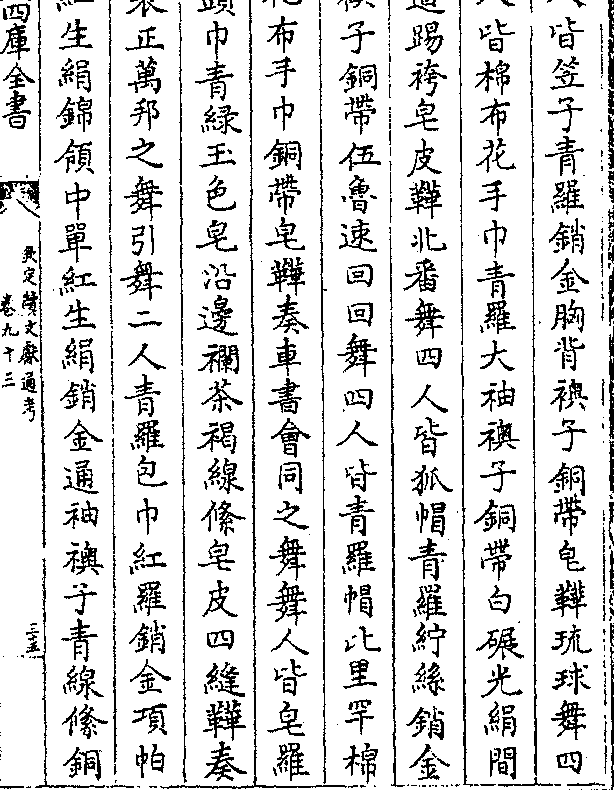 皆笠子青羅銷金胸背襖子銅帶皂鞾琉球舞四
皆棉布花手巾青羅大袖襖子銅帶白碾光絹間
踢袴皂皮鞾北番舞四人皆狐帽青羅紵絲銷金
襖子銅帶伍魯速回回舞四人皆青羅帽比里罕棉
布手巾銅帶皂鞾奏車書會同之舞舞人皆皂羅
頭巾青綠玉色皂沿邊襴茶褐線絛皂皮四縫鞾奏
表正萬邦之舞引舞二人青羅包巾紅羅銷金項帕
紅生絹錦領中單紅生絹銷金通袖襖子青線絛銅
四庫全書
欽定續文獻通考
卷九十三
三五